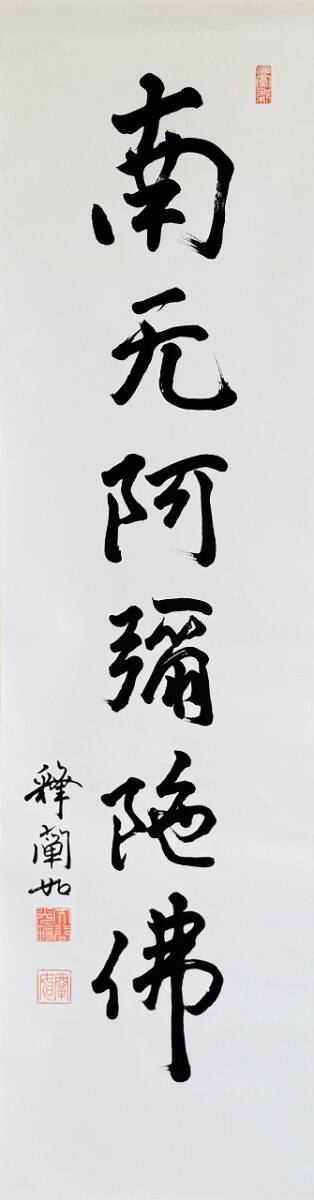 南无阿彌陀佛
釋蘭如